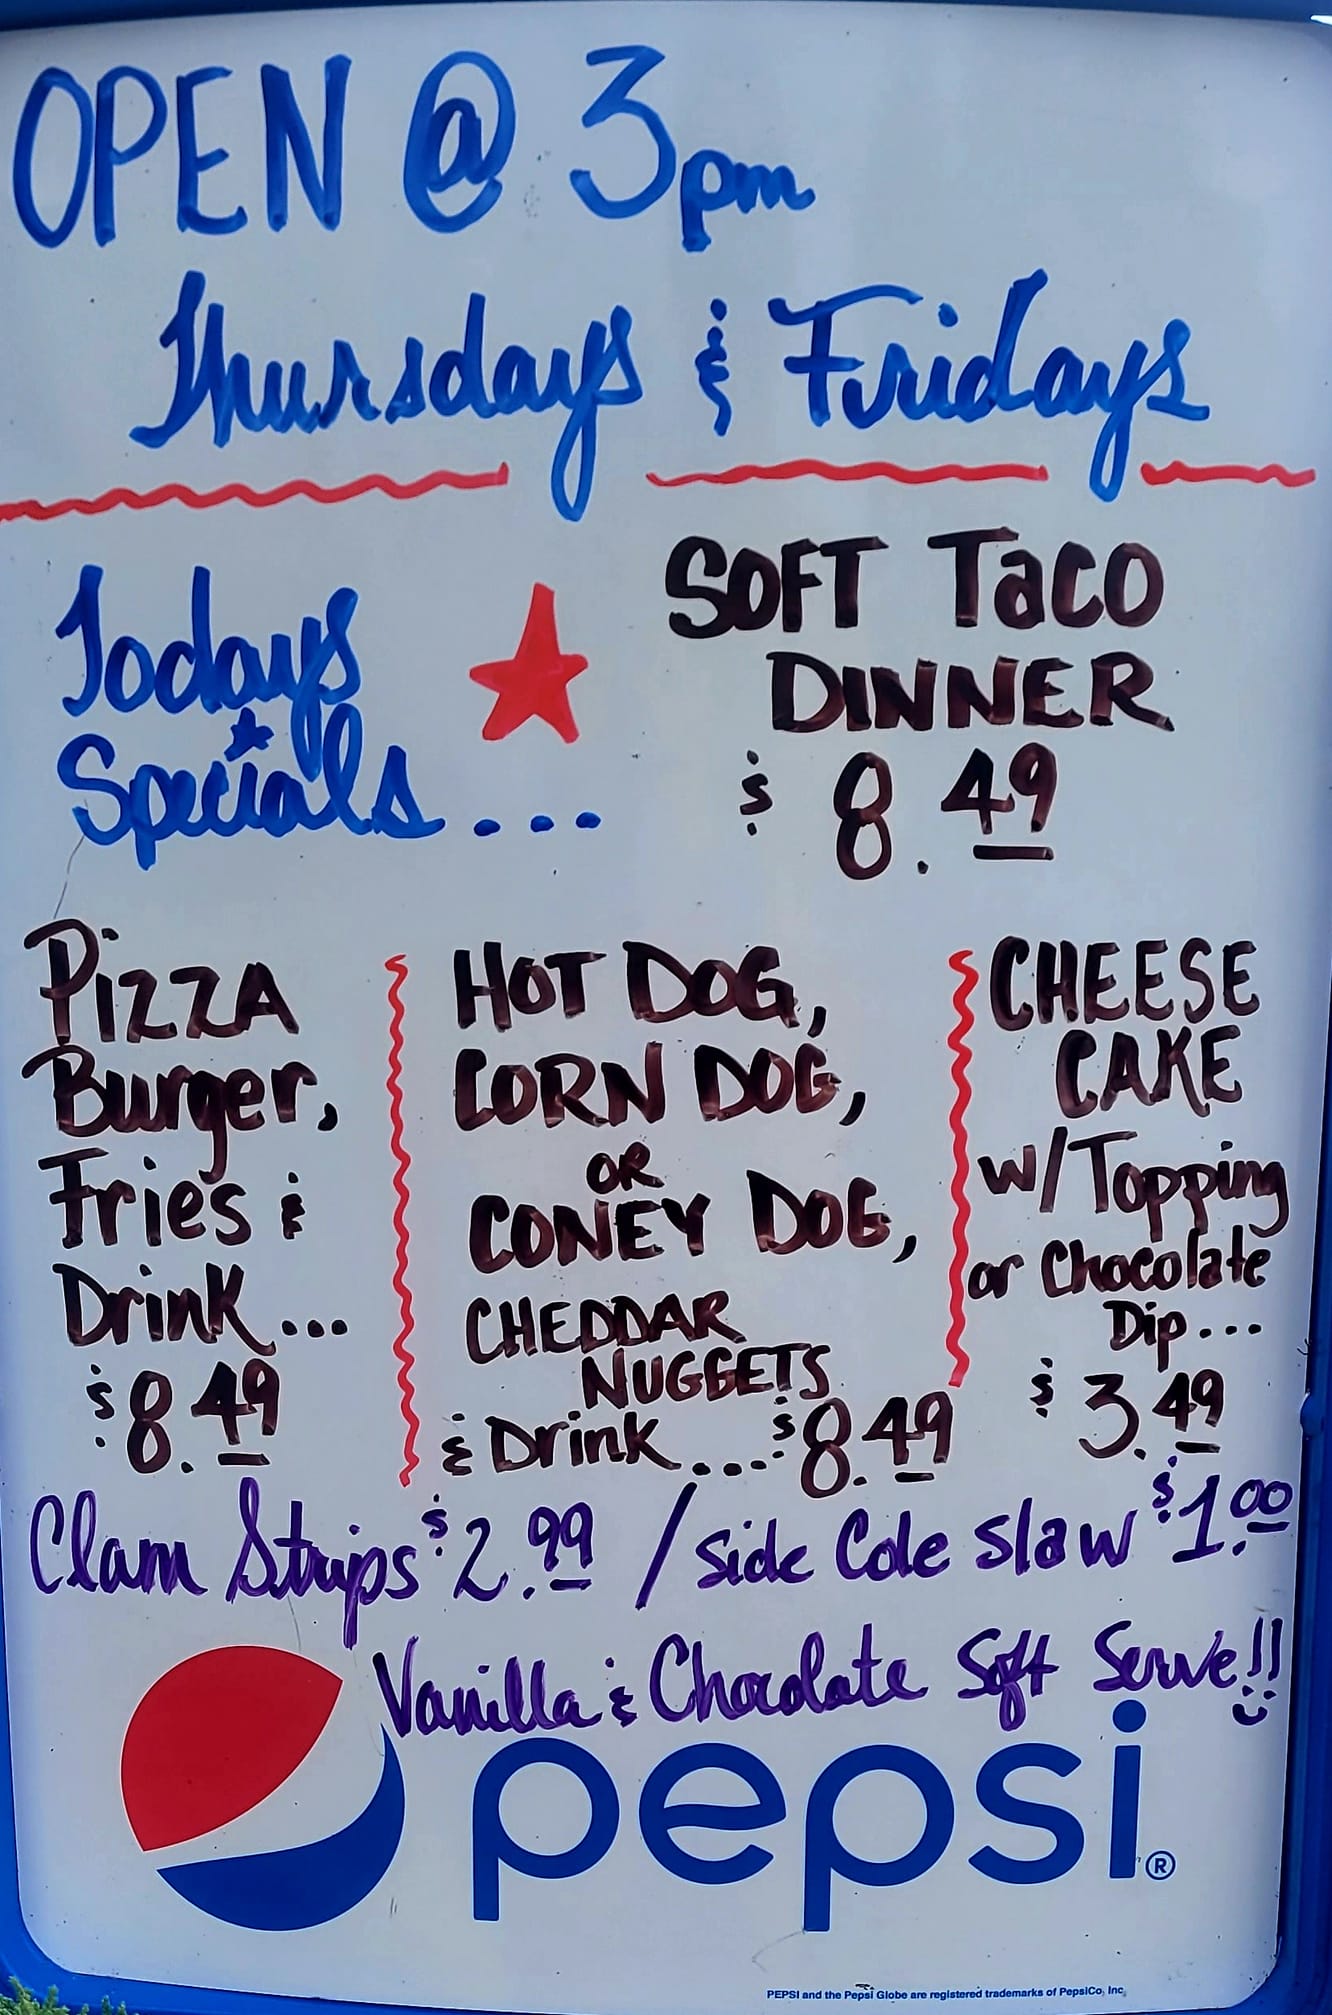 OPEN @ 3pm
Thursdays & Fridays
Todays
Specials...
SOFT Taco
DINNER
$8.49
Pizza
Burger,
Fries &
Drink...
$8.49
HOT DOG,
CORN DOG,
OR
CONEY DOG,
CHEDDAR
NUGGETS
& Drink....$8.49
CHEESE
CAKE
w/Topping
or Chocolate
Dip...
$3.49
Clam Strips $2.99 / side Cole slaw $1.00
Vanilla & Chocolate Soft Serve!!
pepsi®
PEPSI and the Pepsi Globe are registered trademarks of PepsiCo, Inc.